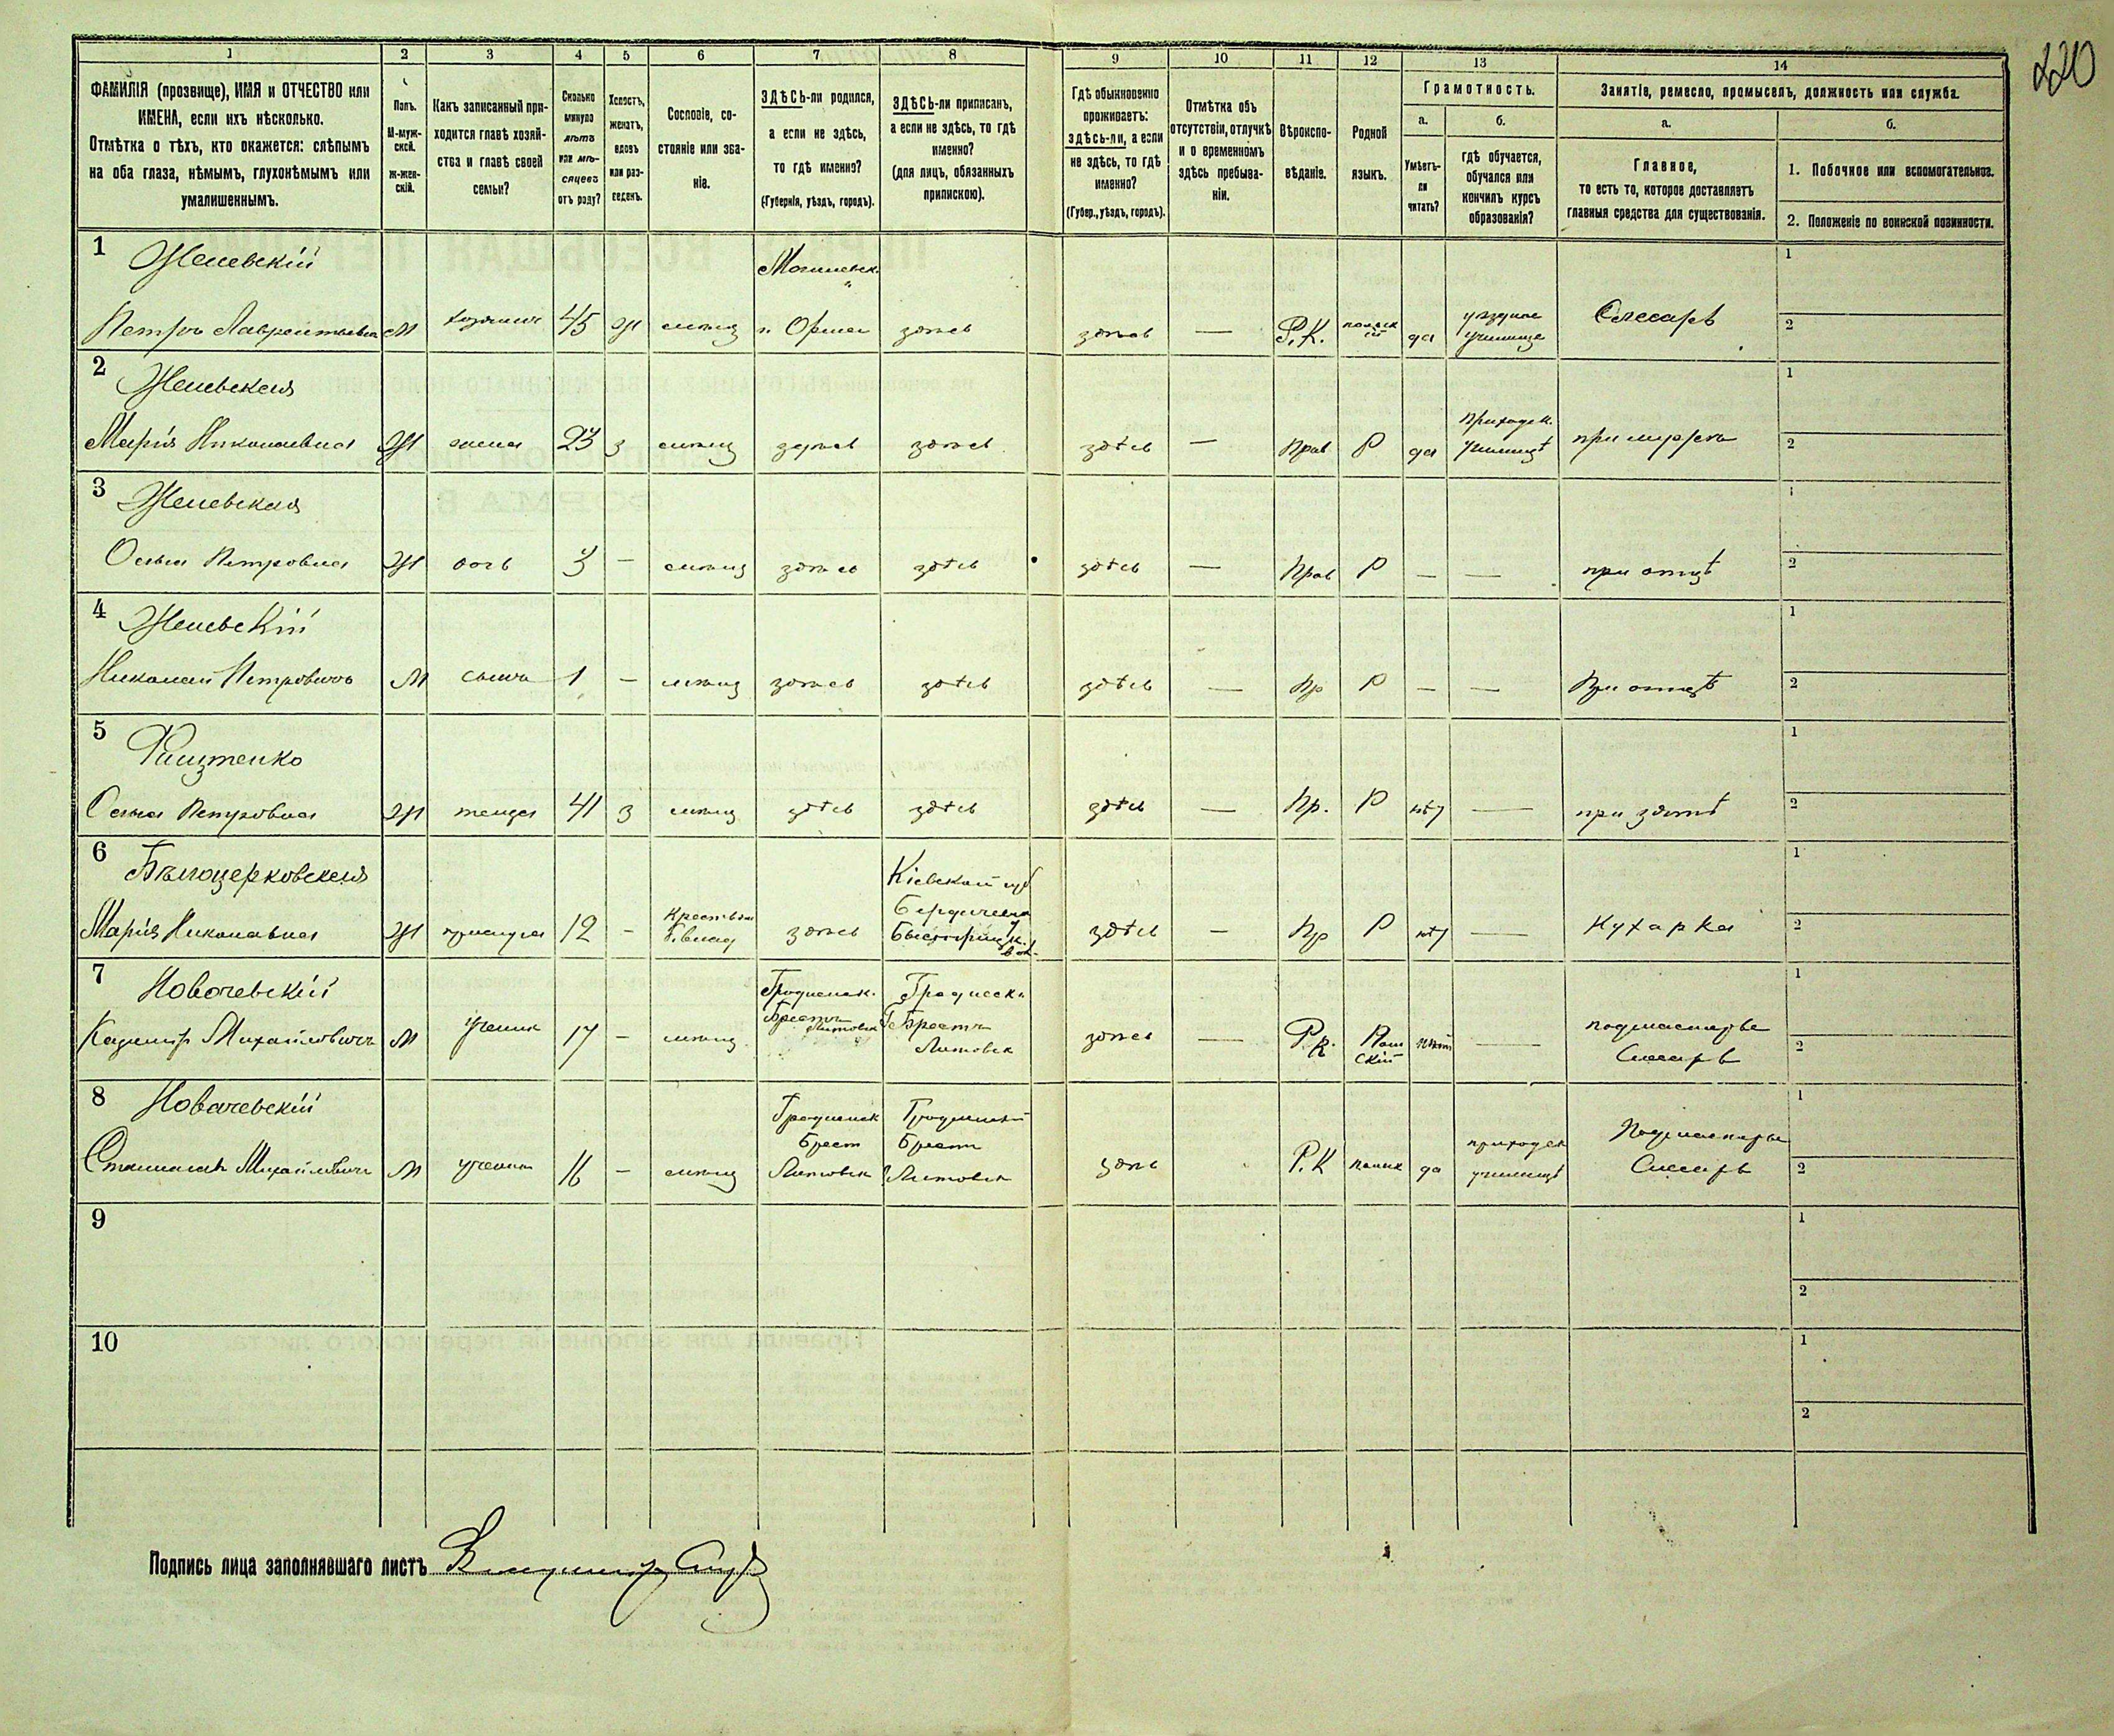 220
1
2
3
4
5
6
7
8
9
10
11
12
13
14
ФАМИЛІЯ (прозвище), ИМЯ и ОТЧЕСТВО или
ИМЕНА, если ихъ нѣсколько.
Отмѣтка о тѣхъ, кто окажется: слѣпымъ
на оба глаза, нѣмымъ, глухонѣмымъ или
умалишеннымъ.
Полъ.
М-муж-
ской.
Ж-жен-
скій.
Какъ записанный при-
ходится главѣ хозяй-
ства и главѣ своей
семьи?
Сколько
минуло
лѣтъ
или мѣ-
сяцевъ
отъ роду?
Холостъ,
женатъ,
вдовъ
или раз-
веденъ.
Сословіе, со-
стояніе или зва-
ніе.
ЗДѢСЬ-ли родился,
а если не здѣсь,
то гдѣ именно?
(Губернія, уѣздъ, городъ).
ЗДѢСЬ-ли приписанъ,
а если не здѣсь, то гдѣ
именно?
(для лицъ, обязанныхъ
припискою).
Гдѣ обыкновенно
проживаетъ:
здѣсь-ли, а если
не здѣсь, то гдѣ
именно?
(Губер., уѣздъ, городъ).
Отмѣтка объ
отсутствіи, отлучкѣ
и о временномъ
здѣсь пребыва-
ніи.
Вѣроиспо-
вѣданіе.
Родной
языкъ.
Грамотность.
а.
Умѣетъ-
ли
читать?
б.
гдѣ обучается,
обучался или
кончилъ курсъ
образованія?
Занятіе, ремесло, промыселъ, должность или служба.
а.
Главное,
то есть то, которое доставляетъ
главныя средства для существованія.
б.
1. Побочное или вспомогательное.
2. Положеніе по воинской повинности.
1
Могилевск.
Петръ Лаврентьевичъ М хозяинъ 45 ж мѣщ г. Орша здѣсь здѣсь — Р.К. польскій да уѣздное училище Слесарь
1
2
2
Марія Николаевна Ж жена 23 з мѣщ здѣсь здѣсь здѣсь — Прав Р да приходск. училищѣ при мужѣ
1
2
3
Петровна Ж дочь 3 — мѣщ здѣсь здѣсь здѣсь — Прав Р — — при отцѣ
1
2
4
Николай Петровичъ М сынъ 1 — мѣщ здѣсь здѣсь здѣсь — Пр Р — — При отцѣ
1
2
5
Петровна Ж теща 41 з мѣщ здѣсь здѣсь здѣсь — Пр. Р нѣт — при зятѣ
1
2
6
Бѣлоцерковская
Кіевской губ
Бердичевск
Марія Николавна Ж 12 — здѣсь здѣсь — Пр Р нѣт — Кухарка
1
2
7
Новачевскій
Гродненск. Гродненск.
Брестъ Литовск Брестъ Литовск
Казимір Михайловичъ М ученик 17 — мѣщ здѣсь — Р.К. Польскій нѣт — подмастерье Слесарь
1
2
8
Новачевскій
Гродненск Гродненской
Брест Брестъ
Литовск Литовск
Станиславъ Михайловичъ М ученик 16 — мѣщ здѣсь Р.К польск да приходск училищѣ Подмастерье Слесарь
1
2
9
1
2
10
1
2
Подпись лица заполнявшаго листъ